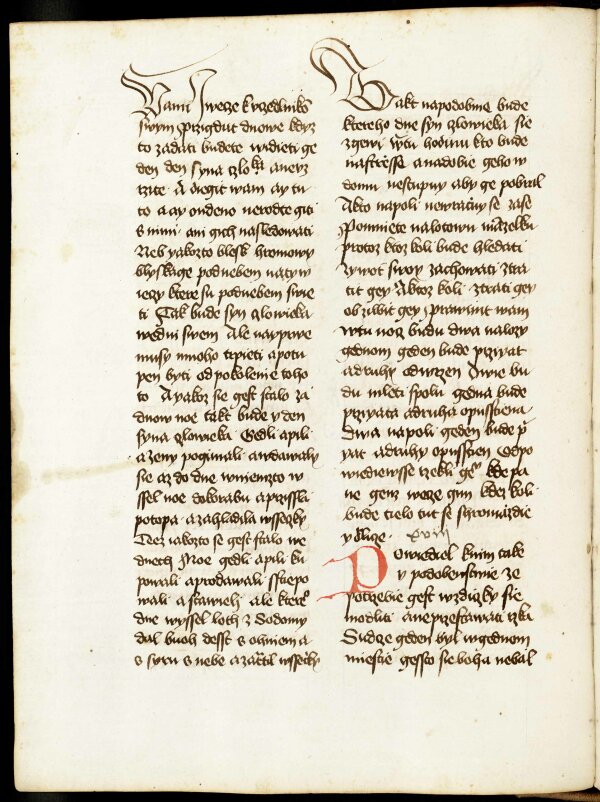 Vami Jwecze kuczedlnikō
swym Przigdut dnowe kdyz
to zadati budete wdieti ge
den den syna czloka aneuz
rzite A diegit wam ay tu
to a ay ondeno nerodte giti
s nimi ani gich nassledowati
Neb yakozto blesk hromowy
blyskage podnebem natyw
ieczy ktere su podnebem swie
ti Tak bude syn czlowieka
wedni swem Ale nayprwe
musy mnoho trpieti a potu
pen byti od pokolenie toho
to Ayakoz sie gest stalo za
dnow noe takt bude y den
syna czlowieka Gedli apili
azeny pogimali awdawaly
sie az do dne wniemzto w
ssel noe dokorabu aprzissla
potopa azahladila wsseczky
Tez yakozto se gest stalo we
dnech Noe gedli apili ku
powali aprodawali sstiepo
wali astawieli ale ktere°
dne wyssel loth z Sodomy
dal buoh dessť s ohniem a
s syru s nebe azatil wssecky
Takt napodobnie bude
ktereho dne syn czlowieka sie
zgewi Wtu hodinu kto bude
nastresse anadobie geho w
domu nestupuy aby ge pobral
Akto napoli newracuy se zase
Pomniete nalotowu mazelku
protoz ktoz koli bude hledati
zywot swoy zachowati ztra
tit gey Aktoz koli ztrati gey
obziwit gey Prawimt wam
wtu nocz budu dwa nalozy
gednom geden bude przyyat
adruhy odwrzen Dwie bu
du mleti spolu gedna bude
przyyata adruha opusstiena
Dwa napoli geden bude p
yat adruhy opusstien Odpo
wiediewsse rzekli ge° kde pa
ne genz wecze gim kdez koli
bude tielo tut se shromazdie
y Orlice xviij
Powiediel knim take
y podobenstwie ze
potrzebie gest wzdiczky sie
modliti aneprzestawati rzka
Sudcze geden byl wgednom
miestie gessto sie boha nebal